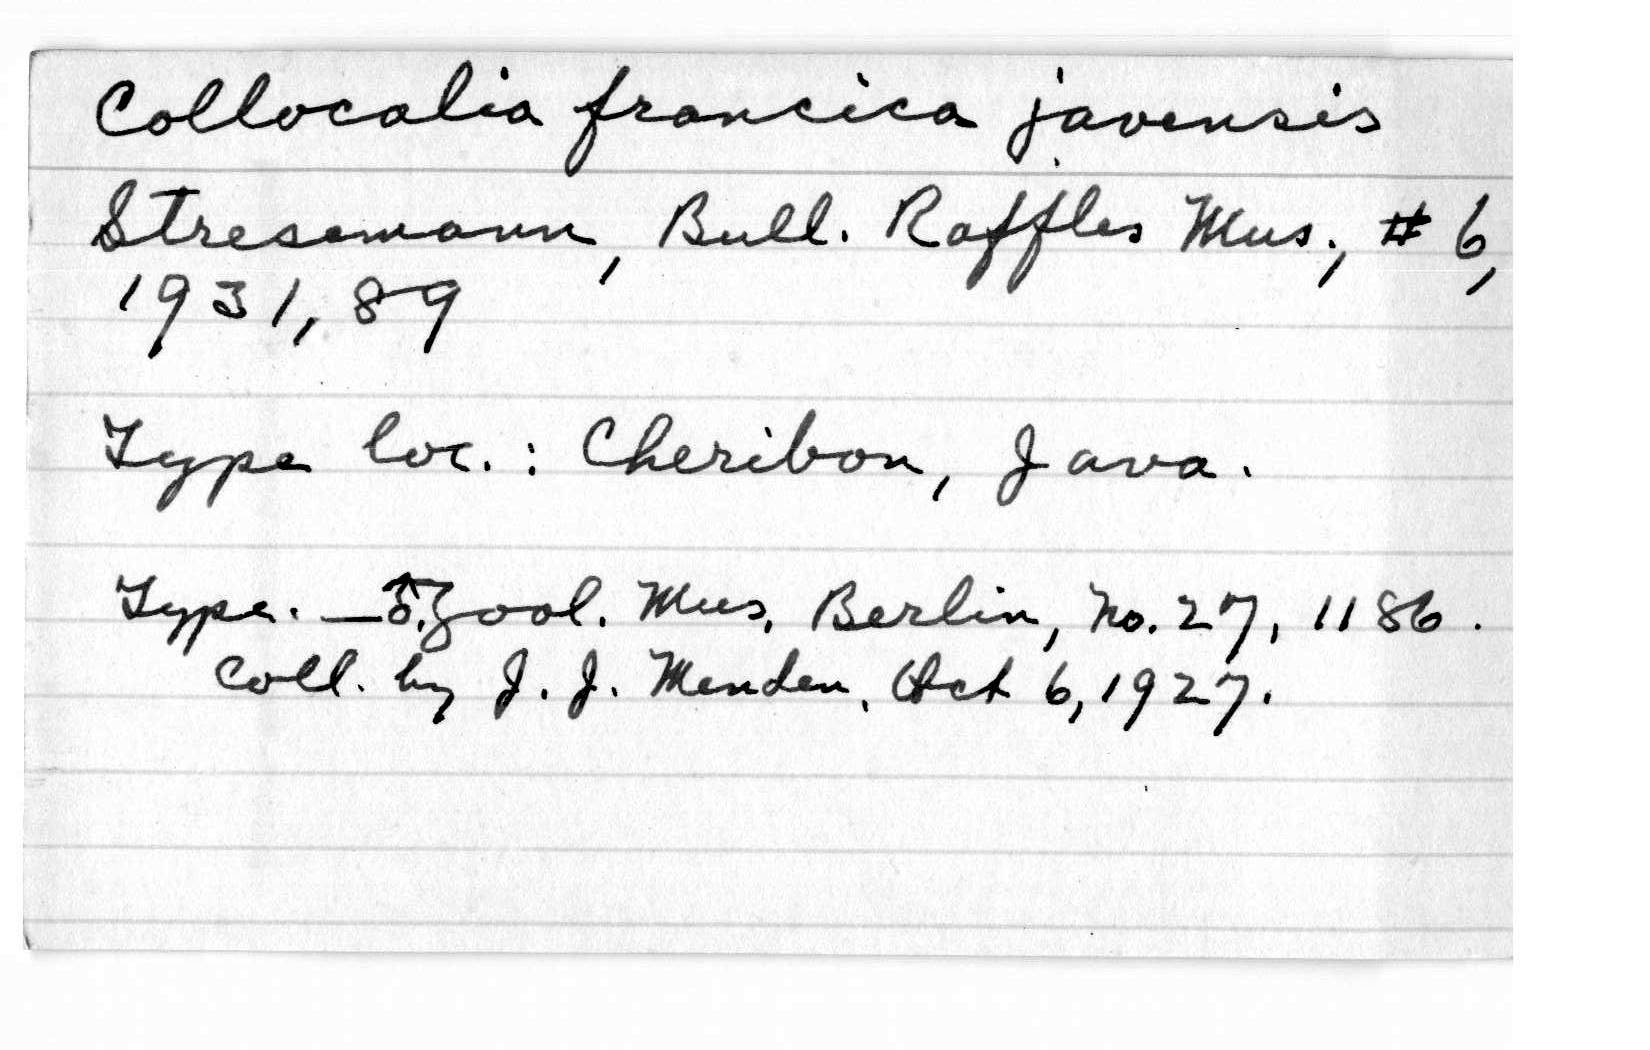 Collocalia francica javensis
Stresemann, Bull. Raffles Mus., # 6,
1931, 89
Type loc. : Cheribon, Java.
Type. — ♂. Zool. Mus. Berlin, No. 27, 1186.
Coll. by J. J. Menden, Oct 6, 1927.